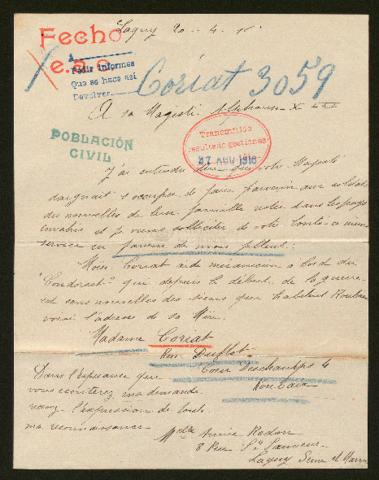 Lagny 20-4-16
Fecho
e.a.o.
Pedir informes
Que se hace así
Devolver
Coriat 3059
A sa Majesté Alphonse X
POBLACIÓN
CIVIL
Transmitido
resultado gestiones
27 AGO 1916
J'ai entendu dire que votre Majesté
daignait s'occuper de faire parvenir aux soldats
des nouvelles de leur famille restée dans les pays
envahis et je viens solliciter de votre bonté ce
service en faveur de mon filleul:
Moïse Coriat aide mécanicien à bord du
"Condorcet" qui depuis le début de la guerre
est sans nouvelles des siens qui habitent Roubaix
voici l'adresse de sa Mère.
Madame Coriat
Rue Duflot
Cour Deschamps 4
Roubaix
Dans l'espérance que
vous écouterez ma demande
recevez l'expression de toute
ma reconnaissance.
Melle Radon
8 Rue St Sauveur
Lagny Seine et Marne